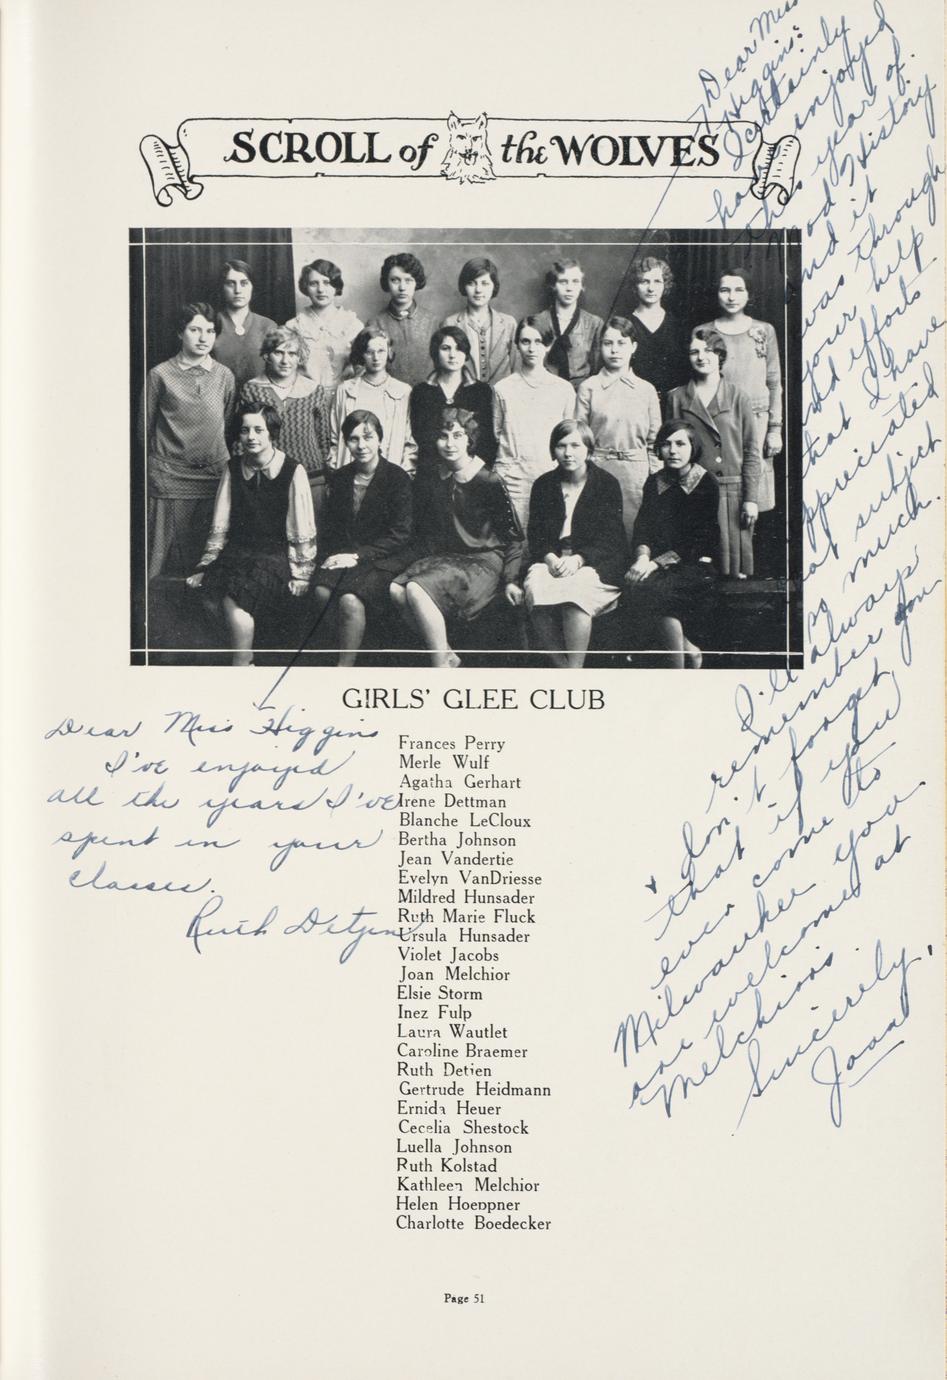 Dear Miss
Higgins:
I certainly
have enjoyed
this year of
Mod History
and it
was through
your help
and efforts
that I have
appreciated
that subject
so much.
I'll always
remember you
& don't forget
that if you
ever come to
Milwaukee you
are welcome at
Melchiors.
Sincerely,
Joan
SCROLL of the WOLVES
GIRLS' GLEE CLUB
Dear Miss Higgins
I've enjoyed
all the years I've
spent in your
classes.
Ruth Detjen
Frances Perry
Merle Wulf
Agatha Gerhart
Irene Dettman
Blanche LeCloux
Bertha Johnson
Jean Vandertie
Evelyn VanDriesse
Mildred Hunsader
Ruth Marie Fluck
Ursula Hunsader
Violet Jacobs
Joan Melchior
Elsie Storm
Inez Fulp
Laura Wautlet
Caroline Braemer
Ruth Detjen
Gertrude Heidmann
Ernida Heuer
Cecelia Shestock
Luella Johnson
Ruth Kolstad
Kathleen Melchior
Helen Hoeppner
Charlotte Boedecker
Page 51